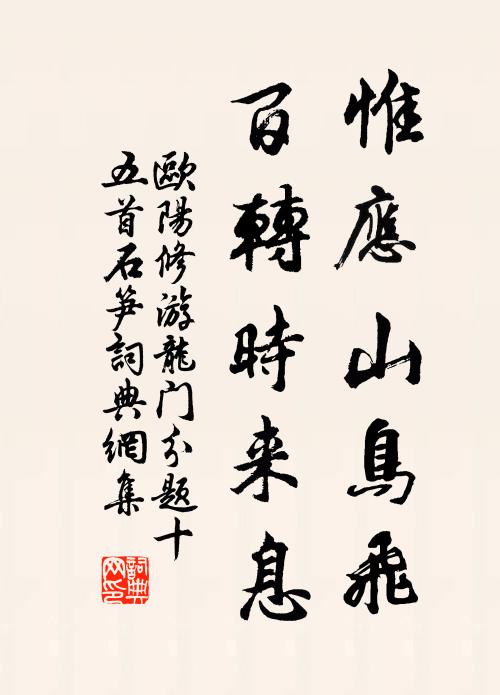 惟應山鳥飛
百轉時来息
歐陽修游龍门分题十
五首石笋詞典網集
詞典
网印